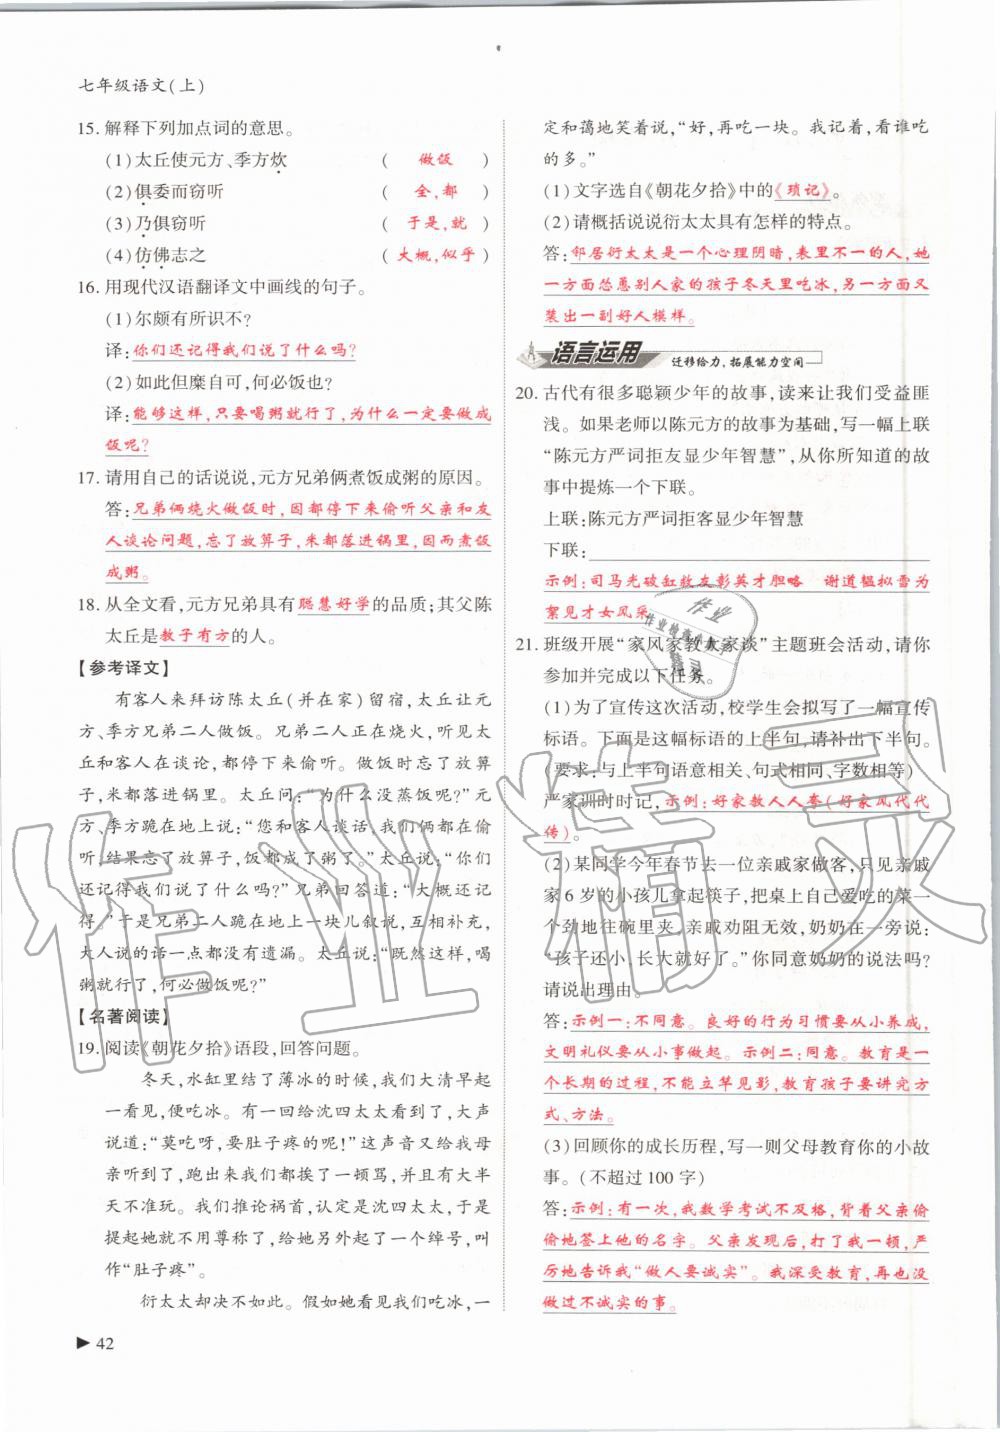 七年级语文(上)
15. 解释下列加点词的意思。
(1)太丘使元方、季方炊 ( 做饭 )
(2)俱委而窃听 ( 全,都 )
(3)乃俱窃听 ( 于是,就 )
(4)仿佛志之 ( 大概,似乎 )
16. 用现代汉语翻译文中画线的句子。
(1)尔颇有所识不?
译:你们还记得我们说了什么吗?
(2)如此但糜自可,何必饭也?
译:能够这样,只要喝粥就行了,为什么一定要做成
饭呢?
17. 请用自己的话说说,元方兄弟俩煮饭成粥的原因。
答:兄弟俩烧火做饭时,因都停下来偷听父亲和友
人谈论问题,忘了放箅子,米都落进锅里,因而煮饭
成粥。
18. 从全文看,元方兄弟具有聪慧好学的品质;其父陈
太丘是教子有方的人。
【参考译文】
有客人来拜访陈太丘(并在家)留宿,太丘让元
方、季方兄弟二人做饭。兄弟二人正在烧火,听见太
丘和客人在谈论,都停下来偷听。做饭时忘了放箅
子,米都落进锅里。太丘问:“为什么没蒸饭呢?”元
方、季方跪在地上说:“您和客人谈话,我们俩都在偷
听,结果忘了放箅子,饭都成了粥了。”太丘说:“你们
还记得我们说了什么吗?”兄弟回答道:“大概还记
得。”于是兄弟二人跪在地上一块儿叙说,互相补充,
大人说的话一点都没有遗漏。太丘说:“既然这样,喝
粥就行了,何必做饭呢?”
【名著阅读】
19. 阅读《朝花夕拾》语段,回答问题。
冬天,水缸里结了薄冰的时候,我们大清早起
一看见,便吃冰。有一回给沈四太太看到了,大声
说道:“莫吃呀,要肚子疼的呢!”这声音又给我母
亲听到了,跑出来我们都挨了一顿骂,并且有大半
天不准玩。我们推论祸首,认定是沈四太太,于是
提起她就不用尊称了,给她另外起了一个绰号,叫
作“肚子疼”。
衍太太却决不如此。假如她看见我们吃冰,一
▶ 42
定和蔼地笑着说,“好,再吃一块。我记着,看谁吃
的多。”
(1)文字选自《朝花夕拾》中的《琐记》。
(2)请概括说说衍太太具有怎样的特点。
答:邻居衍太太是一个心理阴暗,表里不一的人,她
一方面怂恿别人家的孩子冬天里吃冰,另一方面又
装出一副好人模样。
语言运用 迁移给力,拓展能力空间
20. 古代有很多聪颖少年的故事,读来让我们受益匪
浅。如果老师以陈元方的故事为基础,写一幅上联
“陈元方严词拒友显少年智慧”,从你所知道的故
事中提炼一个下联。
上联:陈元方严词拒客显少年智慧
下联:
示例:司马光破缸救友彰英才胆略 谢道韫拟雪为
絮见才女风采
21. 班级开展“家风家教大家谈”主题班会活动,请你
参加并完成以下任务。
(1)为了宣传这次活动,校学生会拟写了一幅宣传
标语。下面是这幅标语的上半句,请补出下半句。
(要求:与上半句语意相关、句式相同、字数相等)
严家训时时记,示例:好家教人人夸(好家风代代
传)。
(2)某同学今年春节去一位亲戚家做客,只见亲戚
家6岁的小孩儿拿起筷子,把桌上自己爱吃的菜一
个劲地往碗里夹,亲戚劝阻无效,奶奶在一旁说:
“孩子还小,长大就好了。”你同意奶奶的说法吗?
请说出理由。
答:示例一:不同意。良好的行为习惯要从小养成,
文明礼仪要从小事做起。示例二:同意。教育是一
个长期的过程,不能立竿见影,教育孩子要讲究方
式、方法。
(3)回顾你的成长历程,写一则父母教育你的小故
事。(不超过100字)
答:示例:有一次,我数学考试不及格,背着父亲偷
偷地签上他的名字。父亲发现后,打了我一顿,严
厉地告诉我“做人要诚实”。我深受教育,再也没
做过不诚实的事。
作业精灵